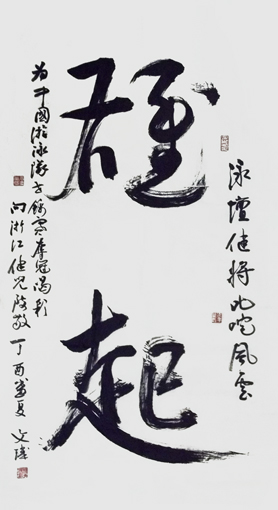 泳壇健将叱咤風雲
雄起
为中國游泳隊奪冠喝彩
向浙江健兒致敬 丁酉盛夏 文